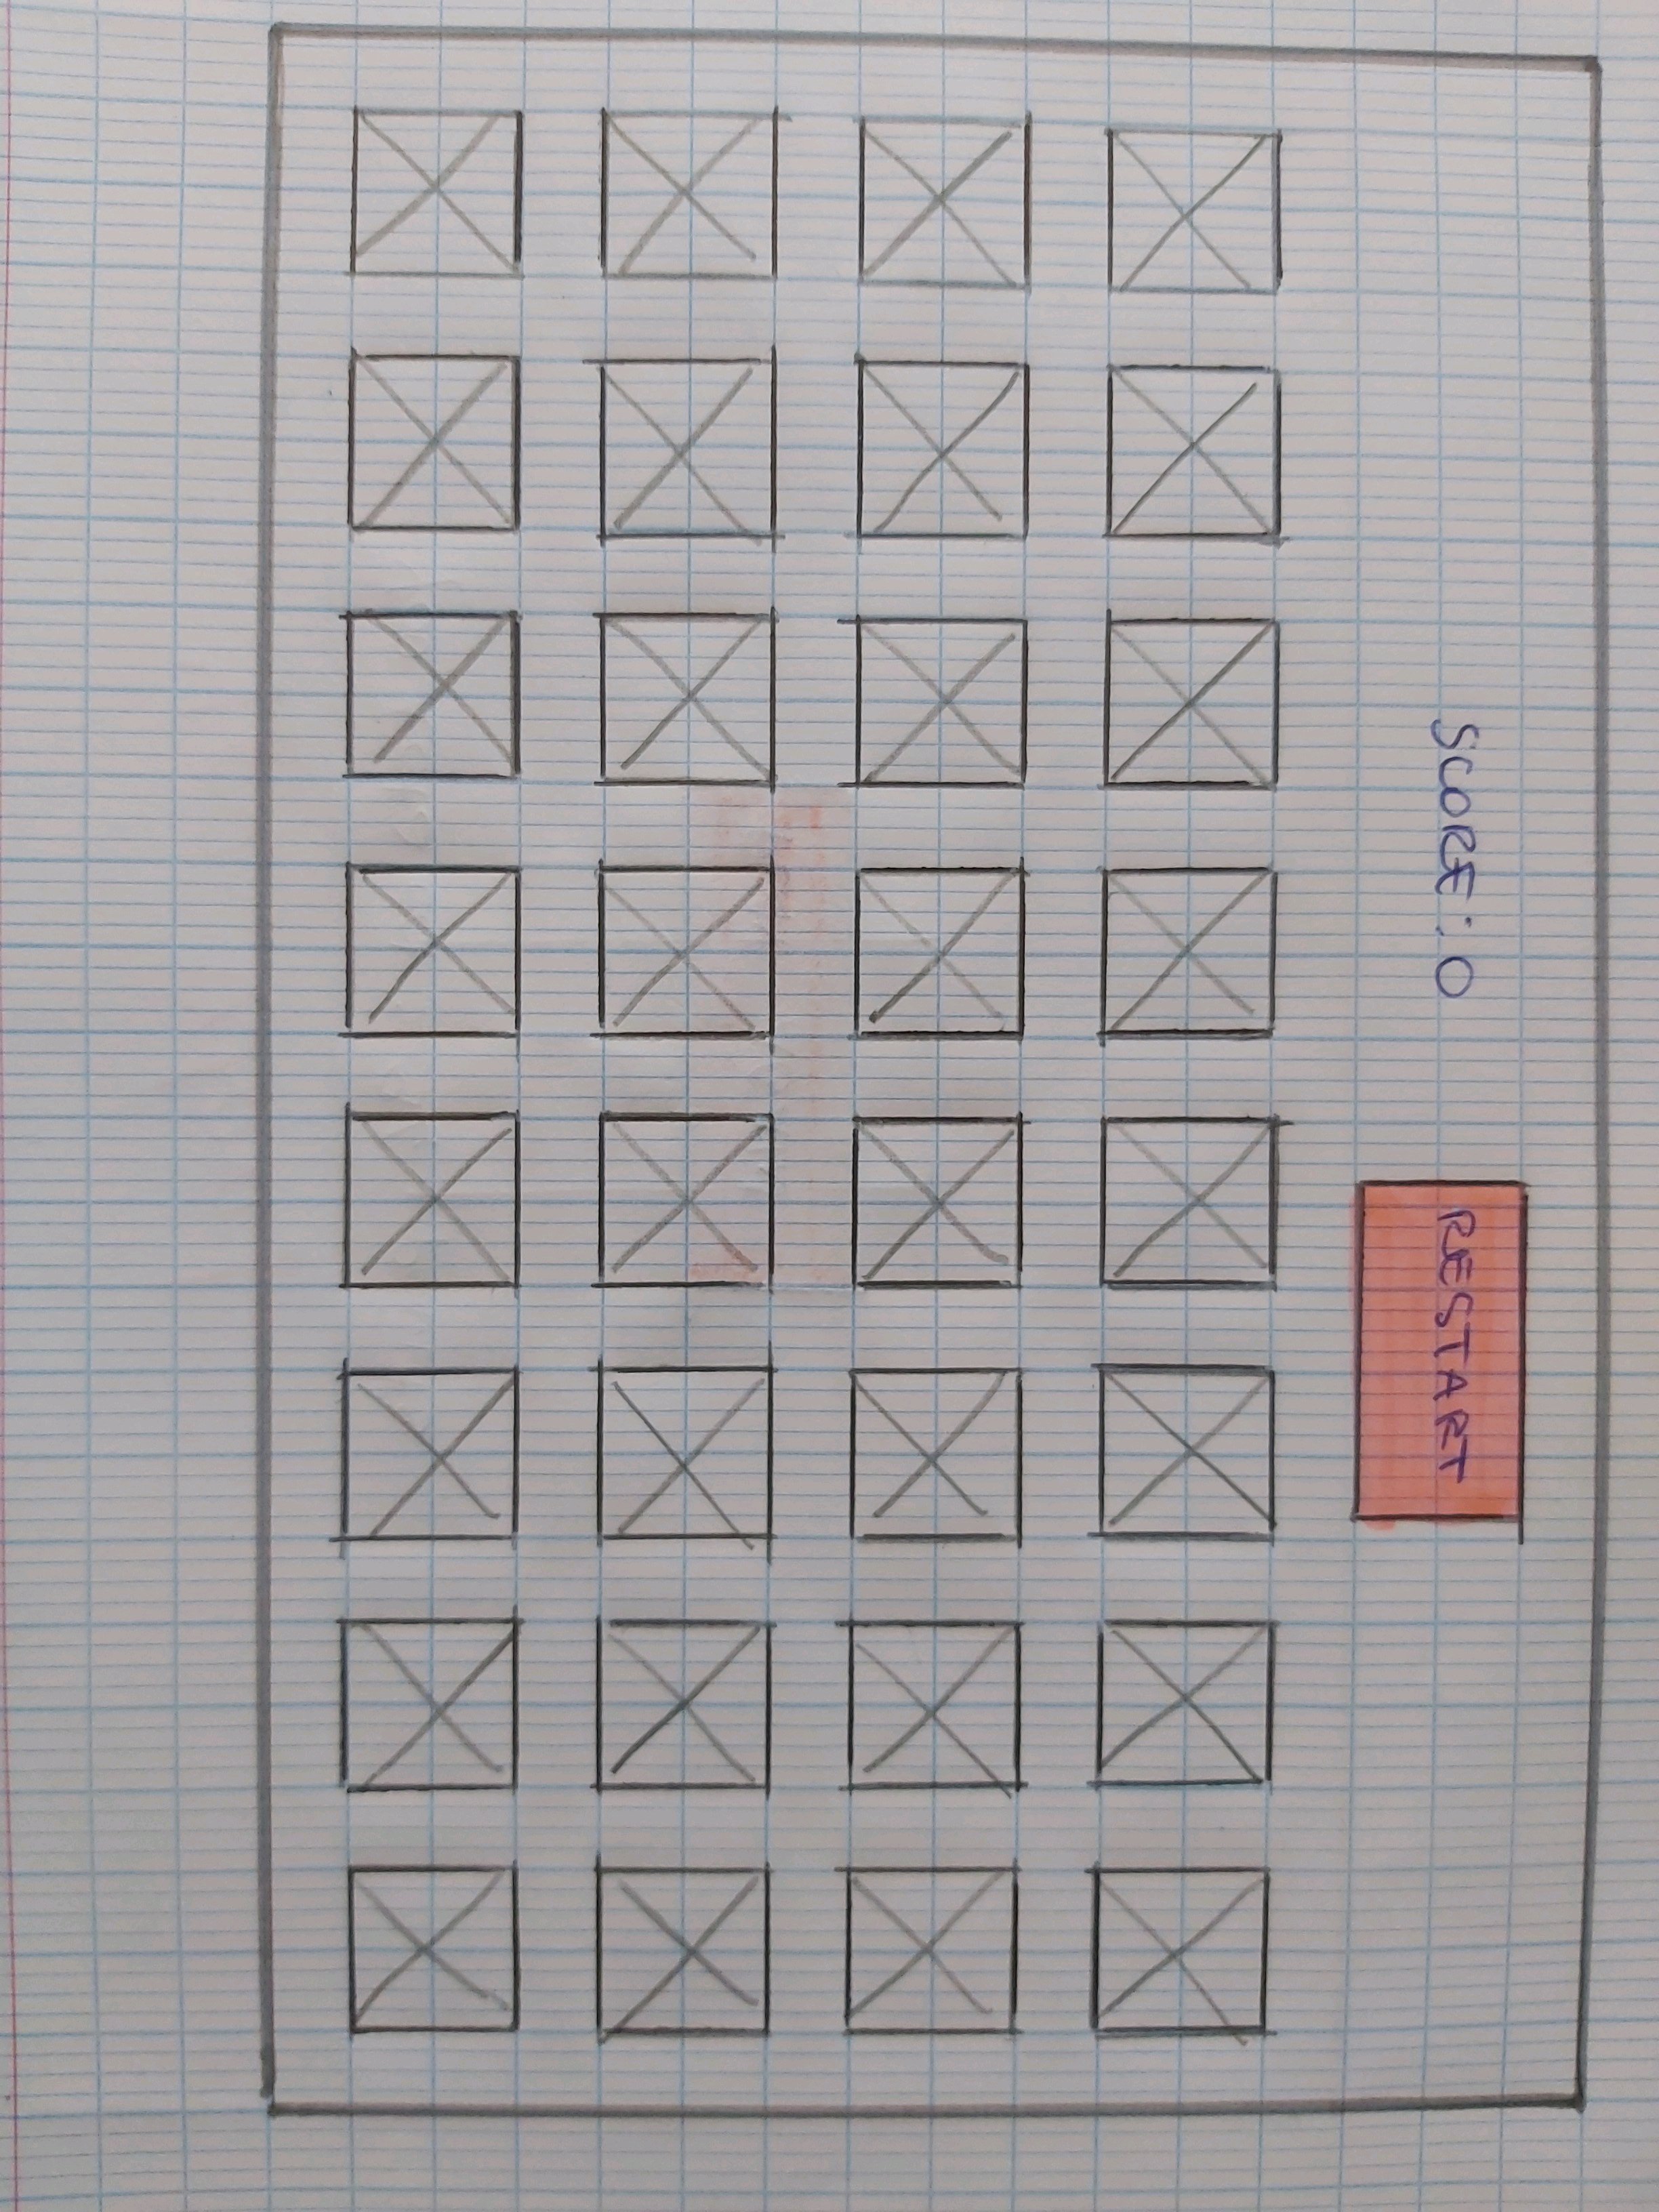 SCORE: 0
RESTART